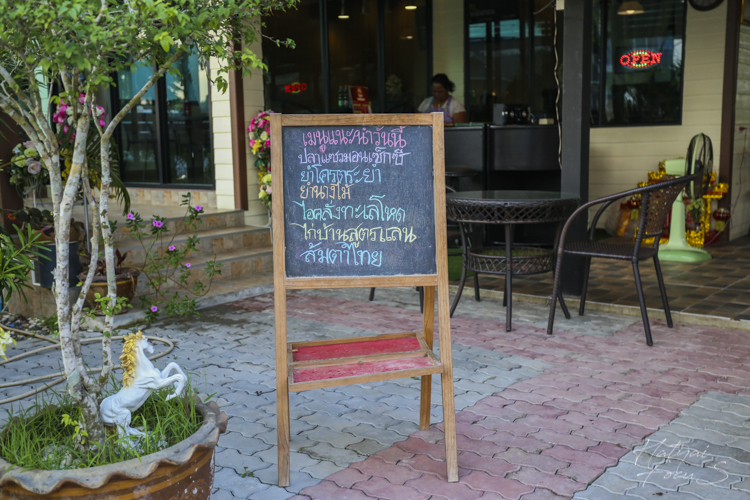 OPEN
เมนูแนะนำวันนี้
ปลาแซวมอนแซ๊กซี่
ยำโครตระยำ
ยำนางไม้
ไอคลั่งทะเลโหด
ไก่บ้านสูตรแลน
ส้มตำไทย
Hatyai
Focus